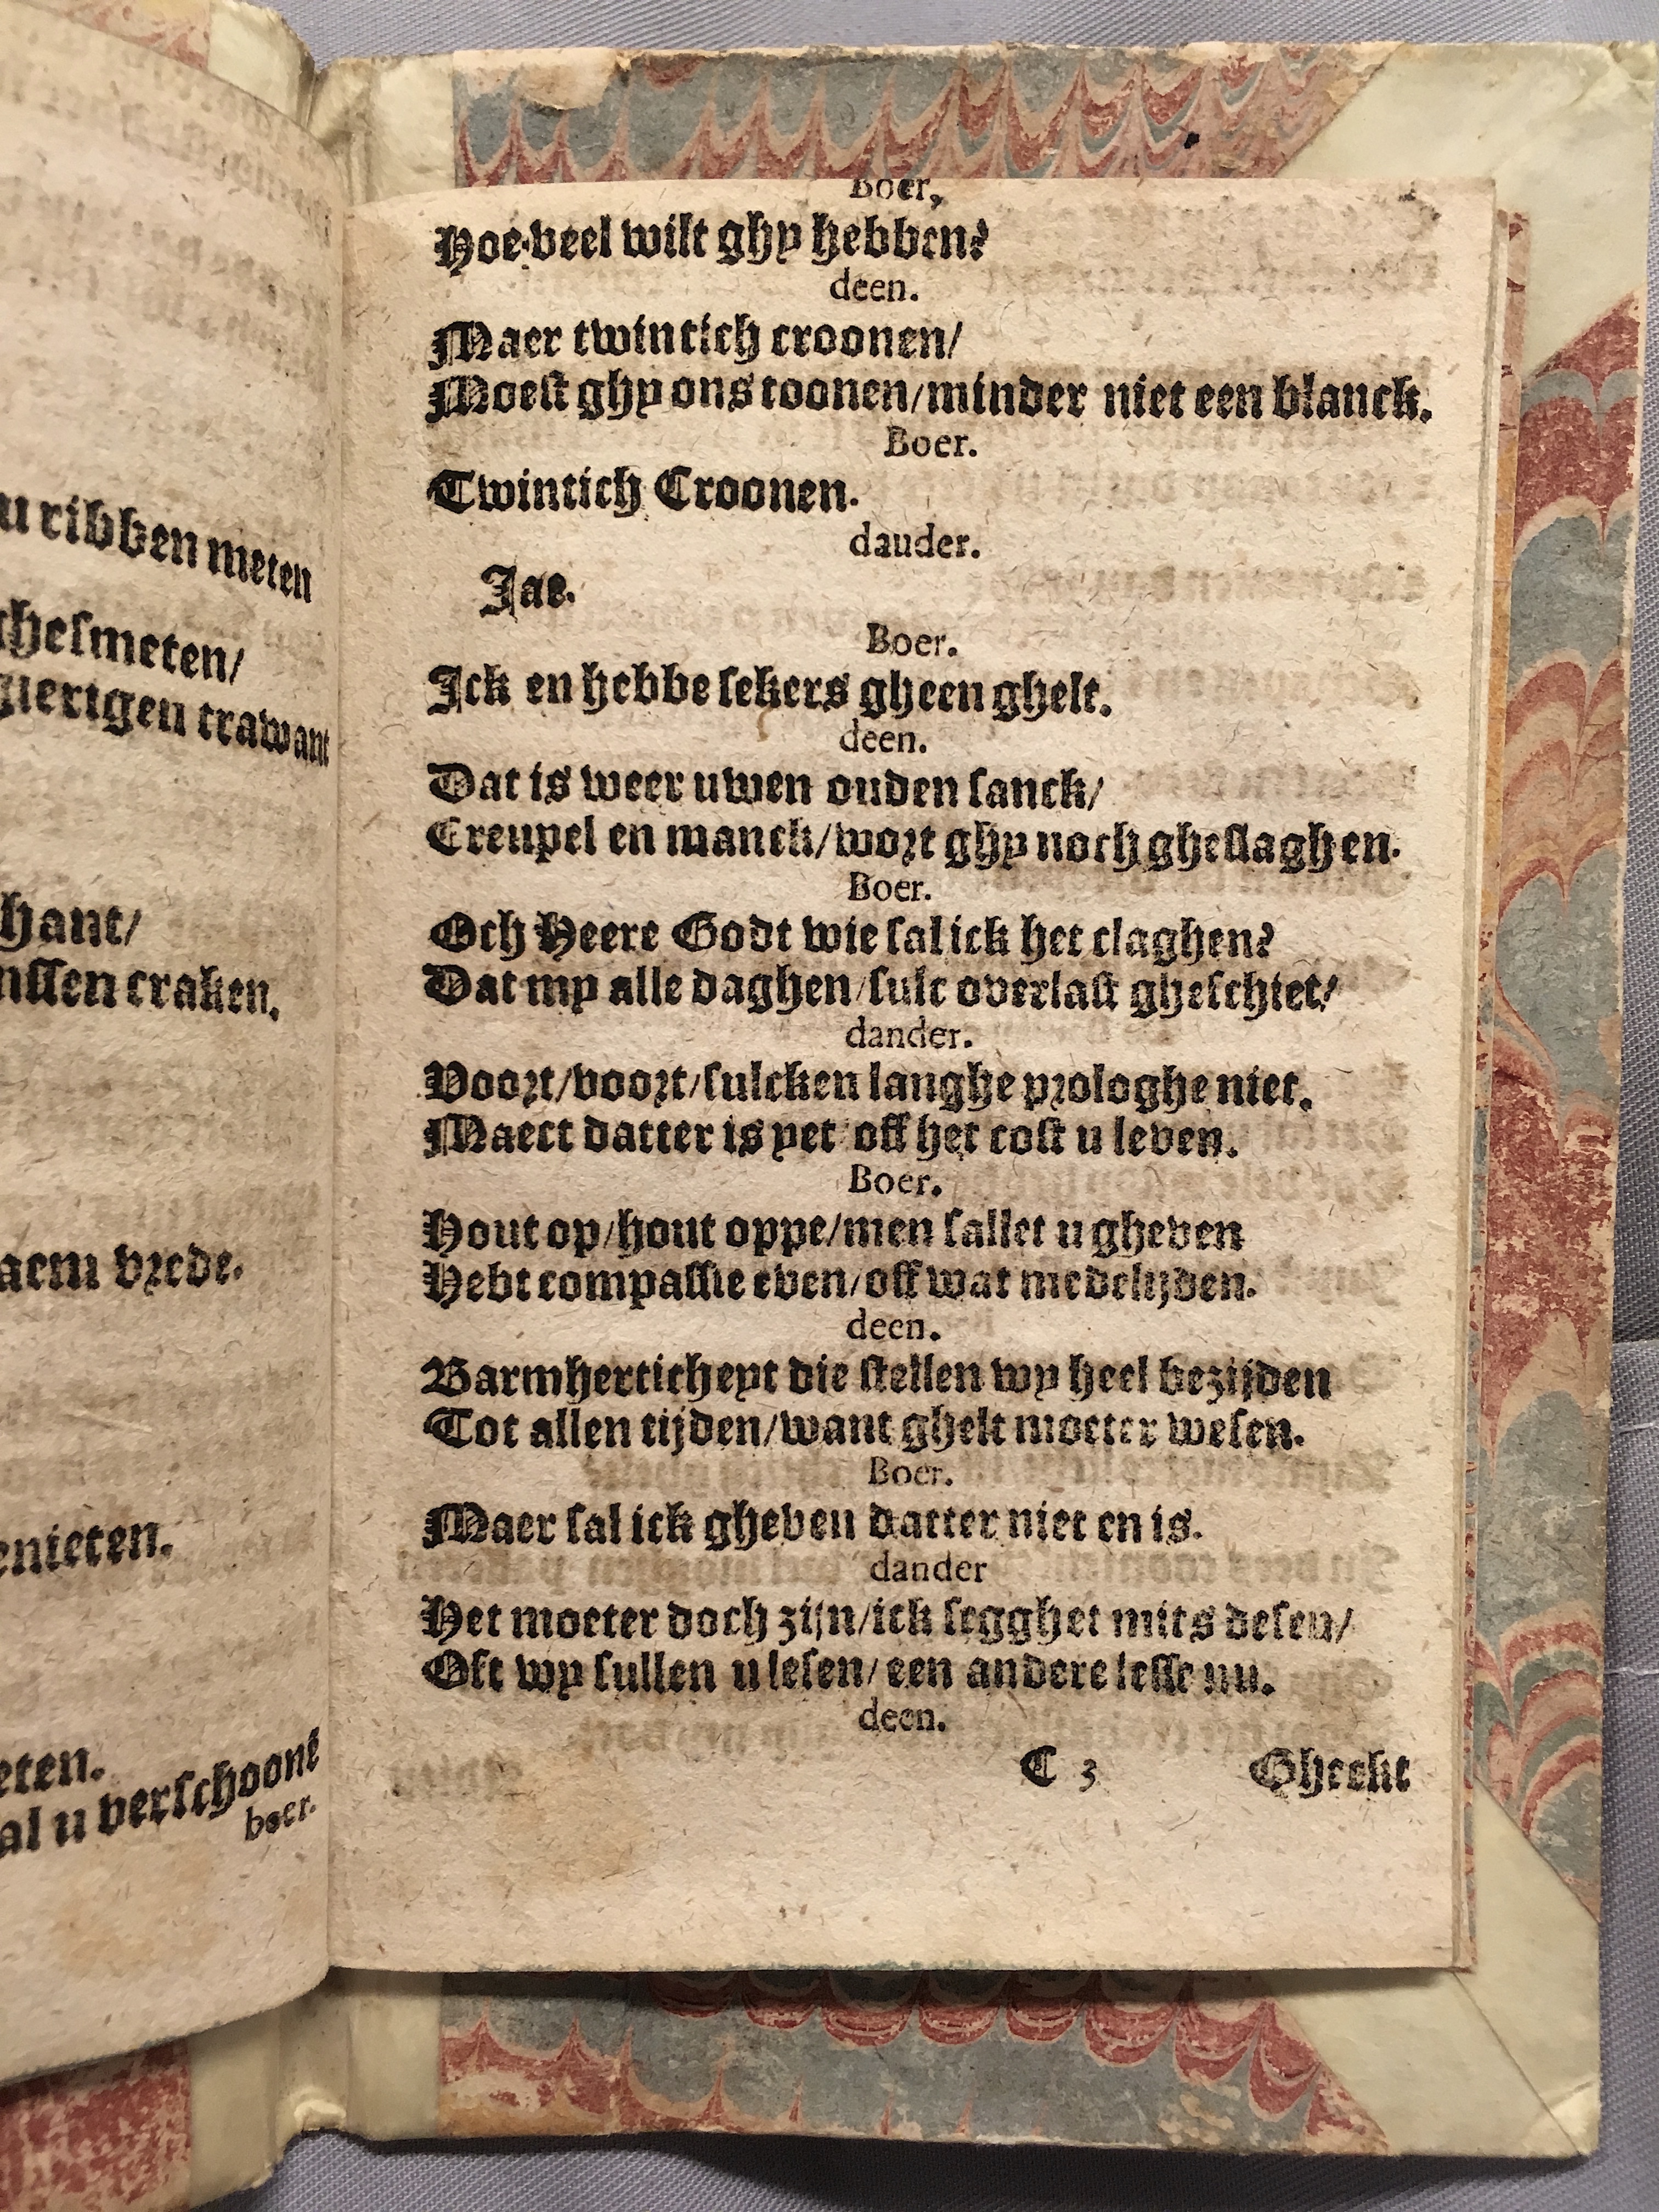 u ribben meten
ghesmeten/
gierigen trawant
hant/
nssen craken.
aem vrede.
enieten.
eten.
al u verschoont
boer.
Boer,
Hoe veel wilt ghy hebben?
deen.
Maer twintich croonen/
Moest ghy ons toonen/minder niet een blanck.
Boer.
Twintich Croonen.
dauder.
Jae.
Boer.
Ick en hebbe sekers gheen ghelt.
deen.
Dat is weer uwen ouden sanck/
Creupel en manck/wort ghy noch gheslaghen.
Boer.
Och Heere Godt wie sal ick het claghen?
Dat my alle daghen/sulc overlast gheschiet/
dander.
Voort/voort/sulcken langhe prologhe niet.
Maect datter is yet off het cost u leven.
Boer.
Hout op/hout oppe/men sallet u gheven
Hebt compassie even/off wat medelijden.
deen.
Barmherticheyt die stellen wy heel bezijden
Tot allen tijden/want ghelt moeter wesen.
Boer.
Maer sal ick gheven datter niet en is.
dander
Het moeter doch zijn/ick segghet mits desen/
Oft wy sullen u lesen/een andere lesse nu.
deen.
C 3 Gheeft